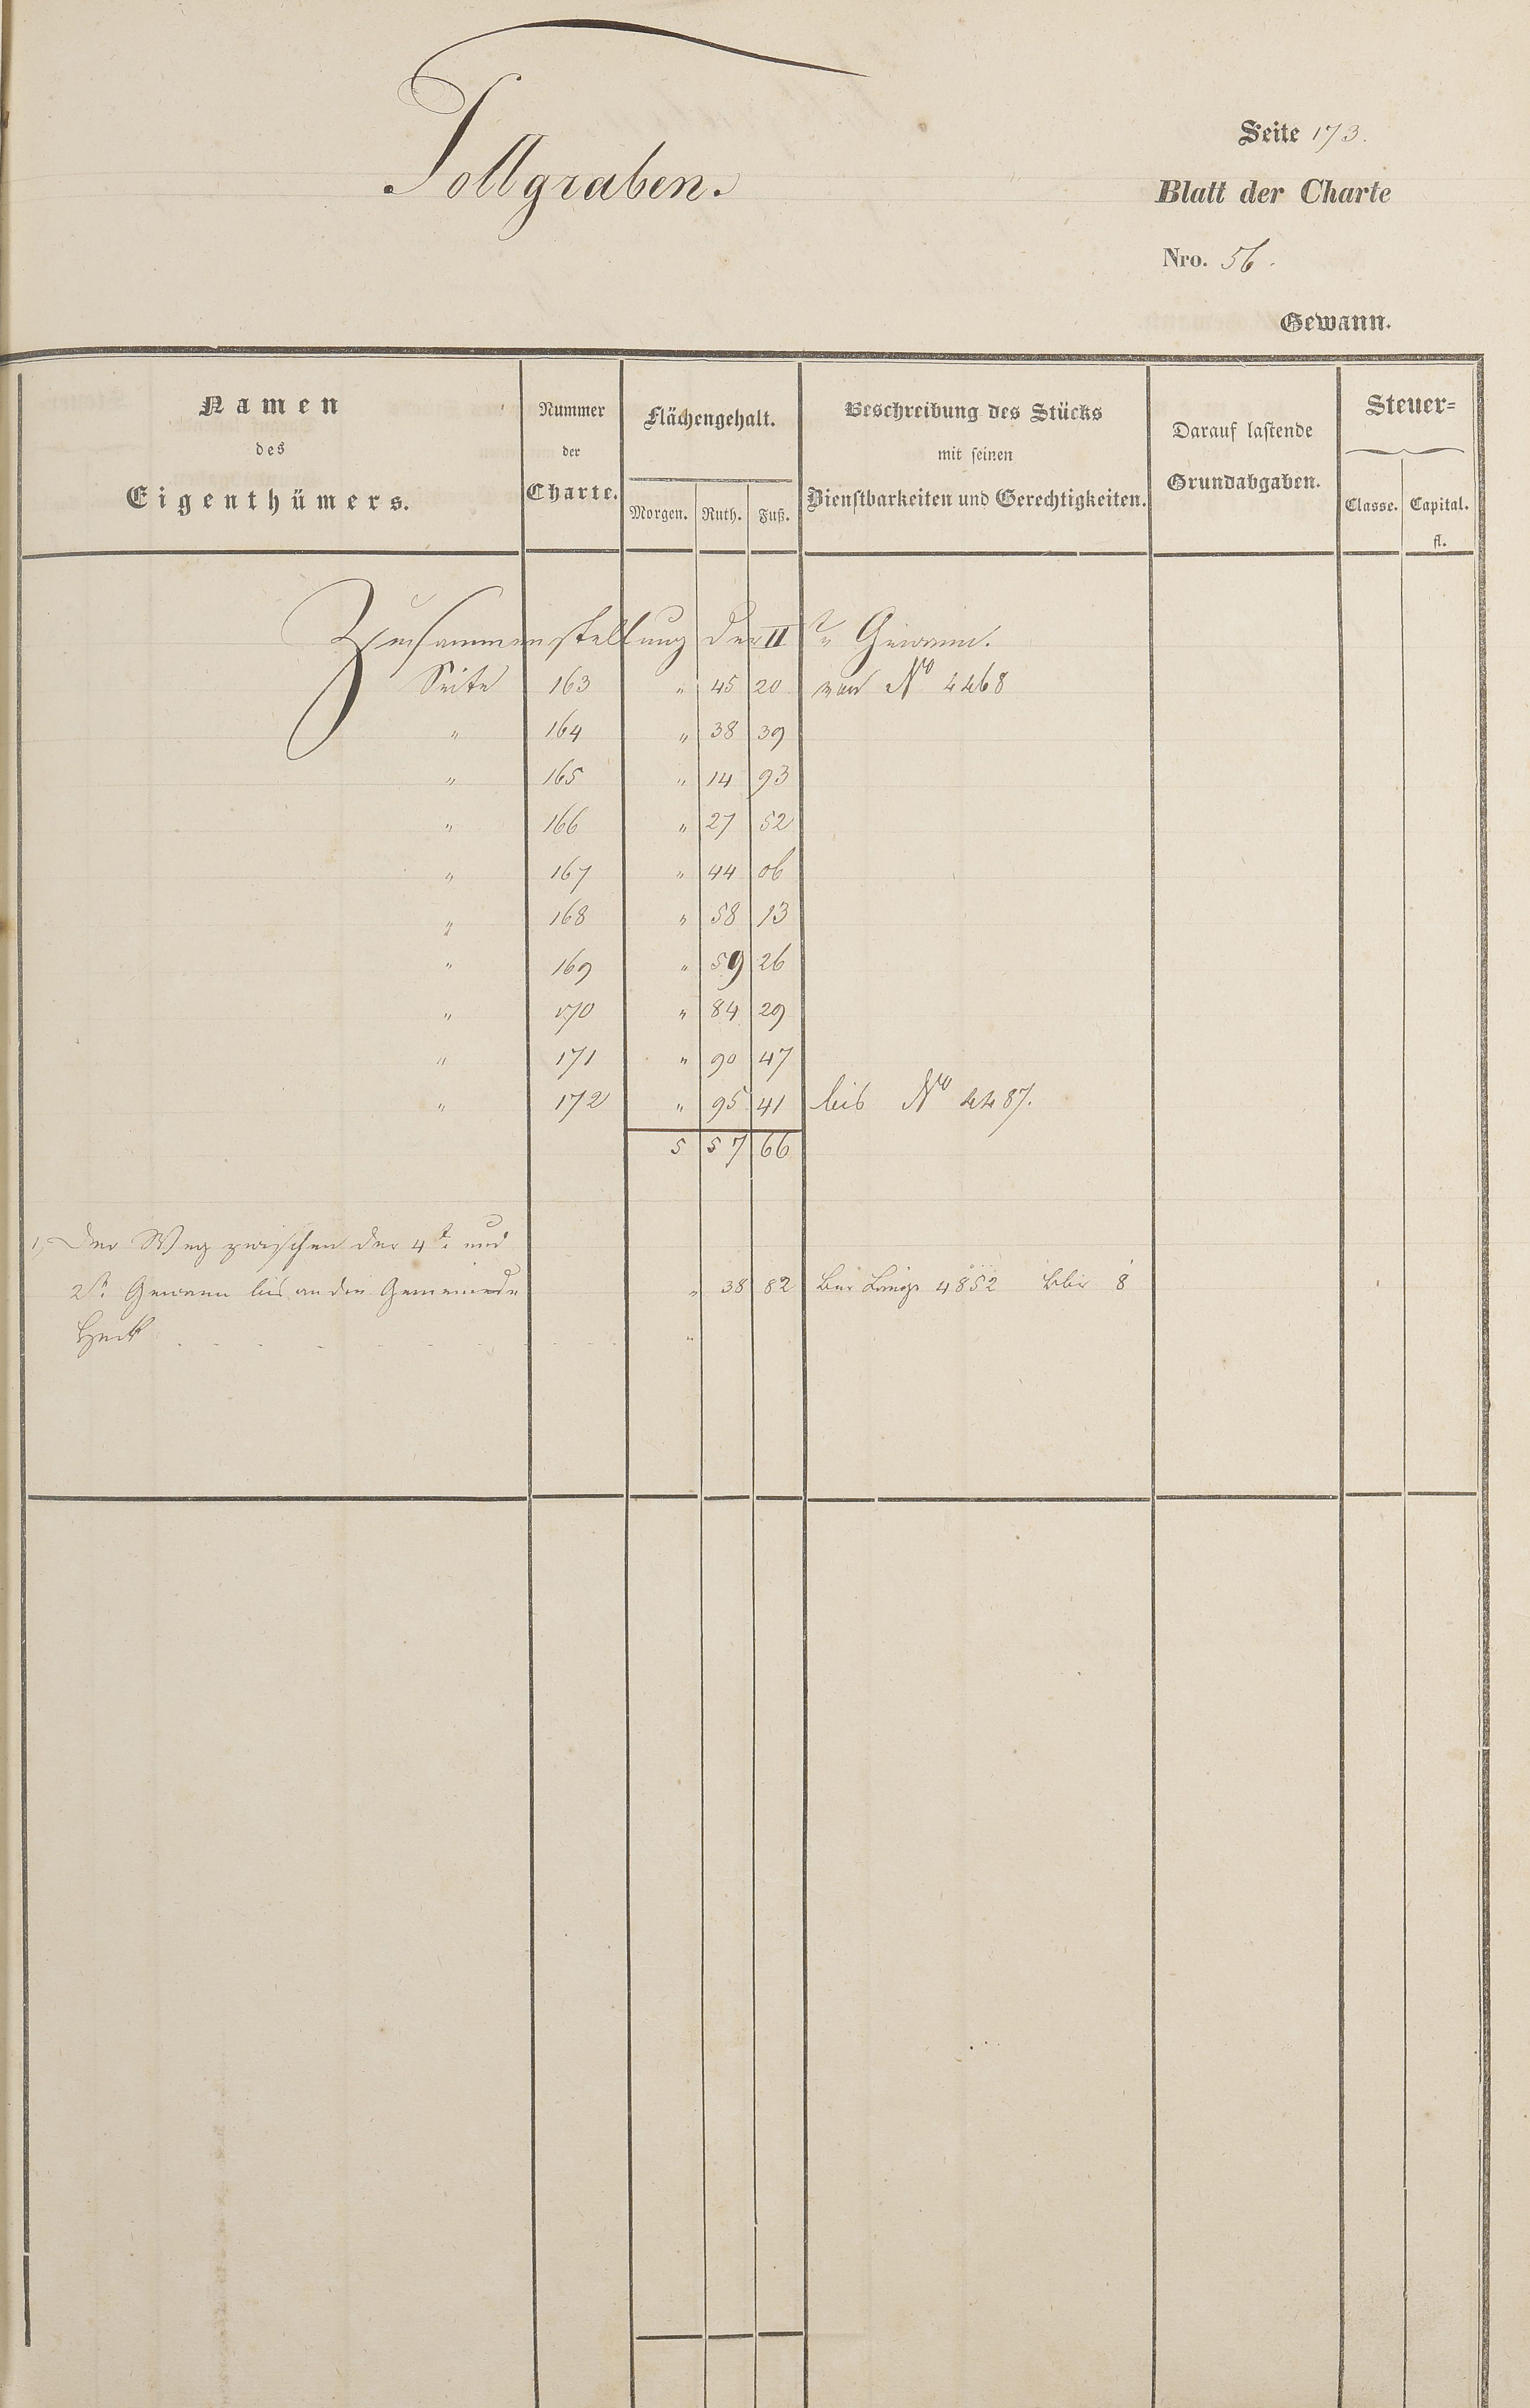 Tollgraben.
Seite 173.
Blatt der Charte
Nro. 56.
Gewann.
Namen des Eigenthümers.
Nummer der Charte.
Flächengehalt.
Morgen. Ruth. Fuß.
Beschreibung des Stücks mit seinen Dienstbarkeiten und Gerechtigkeiten.
Darauf lastende Grundabgaben.
Steuer=
Classe. Capital.
fl.
Zusammenstellung der II t„ Gewann.
Seite 163 „ 45 20 von No 4468
„ 164 „ 38 39
„ 165 „ 14 93
„ 166 „ 27 52
„ 167 „ 44 06
„ 168 „ 58 13
„ 169 „ 59 26
„ 170 „ 84 29
„ 171 „ 90 47
„ 172 „ 95 41 bis No 4487.
5 57 66
1, Der Weg zwischen der 4t. und
2t. Gewann bis an die Gemeinde „ 38 82 Länge 4852 8
„